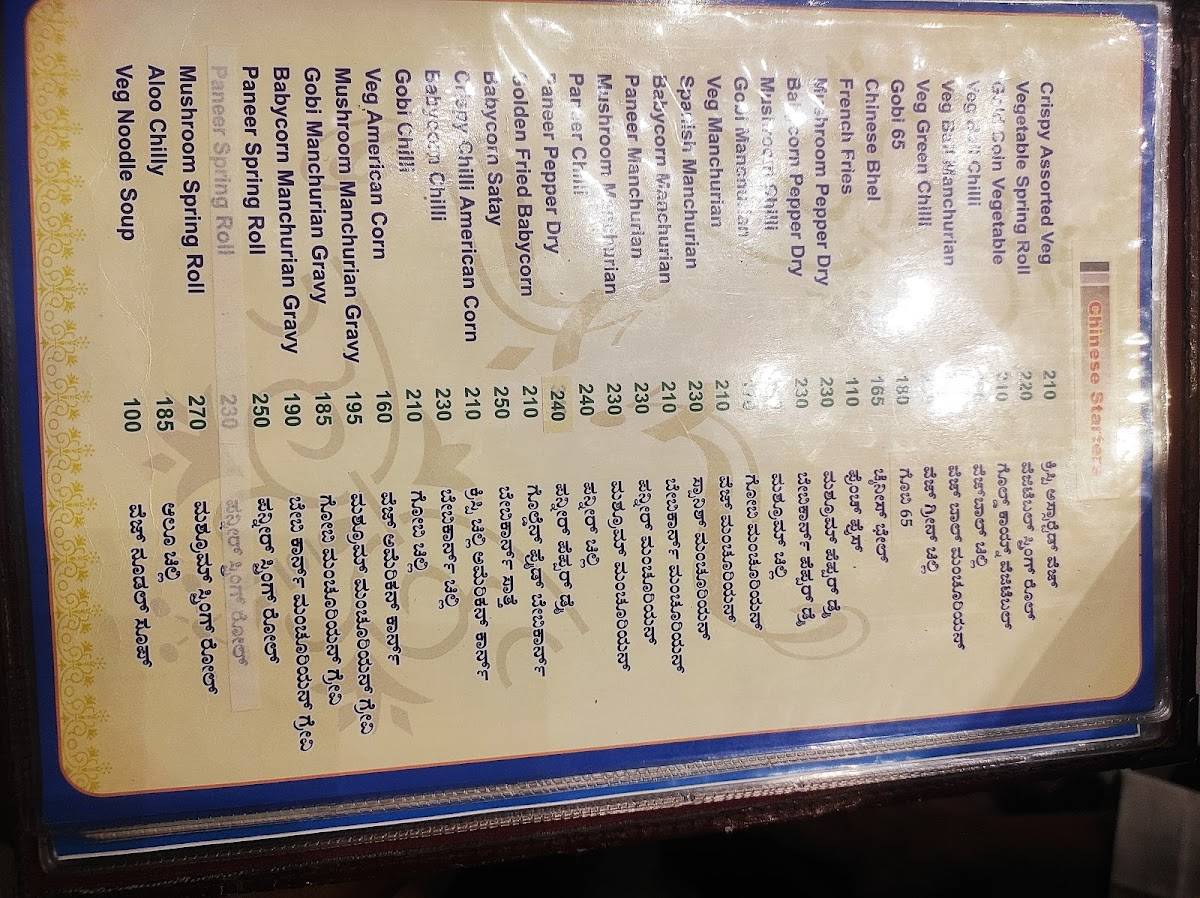 Chinese Starters
Crispy Assorted Veg 210 ಕ್ರಿಸ್ಪಿ ಅಸ್ಸಾರ್ಟೆಡ್ ವೆಜ್
Vegetable Spring Roll 220 ವೆಜಿಟೆಬಲ್ ಸ್ಪ್ರಿಂಗ್ ರೋಲ್
Gold Coin Vegetable 210 ಗೋಲ್ಡ್ ಕಾಯಿನ್ ವೆಜಿಟೆಬಲ್
Veg Ball Chilli ವೆಜ್ ಬಾಲ್ ಚಿಲ್ಲಿ
Veg Ball Manchurian ವೆಜ್ ಬಾಲ್ ಮಂಚೂರಿಯನ್
Veg Green Chilli ವೆಜ್ ಗ್ರೀನ್ ಚಿಲ್ಲಿ
Gobi 65 180 ಗೋಬಿ 65
Chinese Bhel 165 ಚೈನೀಸ್ ಭೇಲ್
French Fries 110 ಫ್ರೆಂಚ್ ಫ್ರೈಸ್
Mushroom Pepper Dry 230 ಮಶ್ರೂಮ್ ಪೆಪ್ಪರ್ ಡ್ರೈ
Babycorn Pepper Dry 230 ಬೇಬಿಕಾರ್ನ್ ಪೆಪ್ಪರ್ ಡ್ರೈ
Mushroom Chilli ಮಶ್ರೂಮ್ ಚಿಲ್ಲಿ
Gobi Manchurian ಗೋಬಿ ಮಂಚೂರಿಯನ್
Veg Manchurian 210 ವೆಜ್ ಮಂಚೂರಿಯನ್
Spanish Manchurian 230 ಸ್ಪಾನಿಶ್ ಮಂಚೂರಿಯನ್
Babycorn Manchurian 210 ಬೇಬಿಕಾರ್ನ್ ಮಂಚೂರಿಯನ್
Paneer Manchurian 230 ಪನ್ನೀರ್ ಮಂಚೂರಿಯನ್
Mushroom Manchurian 230 ಮಶ್ರೂಮ್ ಮಂಚೂರಿಯನ್
Paneer Chilli 240 ಪನ್ನೀರ್ ಚಿಲ್ಲಿ
Paneer Pepper Dry 240 ಪನ್ನೀರ್ ಪೆಪ್ಪರ್ ಡ್ರೈ
Golden Fried Babycorn 210 ಗೋಲ್ಡೆನ್ ಫ್ರೈಡ್ ಬೇಬಿಕಾರ್ನ್
Babycorn Satay 250 ಬೇಬಿಕಾರ್ನ್ ಸಾತ್ತೆ
Crispy Chilli American Corn 210 ಕ್ರಿಸ್ಪಿ ಚಿಲ್ಲಿ ಅಮೆರಿಕನ್ ಕಾರ್ನ್
Babycorn Chilli 230 ಬೇಬಿಕಾರ್ನ್ ಚಿಲ್ಲಿ
Gobi Chilli 210 ಗೋಬಿ ಚಿಲ್ಲಿ
Veg American Corn 160 ವೆಜ್ ಅಮೆರಿಕನ್ ಕಾರ್ನ್
Mushroom Manchurian Gravy 195 ಮಶ್ರೂಮ್ ಮಂಚೂರಿಯನ್ ಗ್ರೇವಿ
Gobi Manchurian Gravy 185 ಗೋಬಿ ಮಂಚೂರಿಯನ್ ಗ್ರೇವಿ
Babycorn Manchurian Gravy 190 ಬೇಬಿ ಕಾರ್ನ್ ಮಂಚೂರಿಯನ್ ಗ್ರೇವಿ
Paneer Spring Roll 250 ಪನ್ನೀರ್ ಸ್ಪ್ರಿಂಗ್ ರೋಲ್
Paneer Spring Roll 230 ಪನ್ನೀರ್ ಸ್ಪ್ರಿಂಗ್ ರೋಲ್
Mushroom Spring Roll 270 ಮಶ್ರೂಮ್ ಸ್ಪ್ರಿಂಗ್ ರೋಲ್
Aloo Chilly 185 ಆಲೂ ಚಿಲ್ಲಿ
Veg Noodle Soup 100 ವೆಜ್ ನೂಡಲ್ ಸೂಪ್